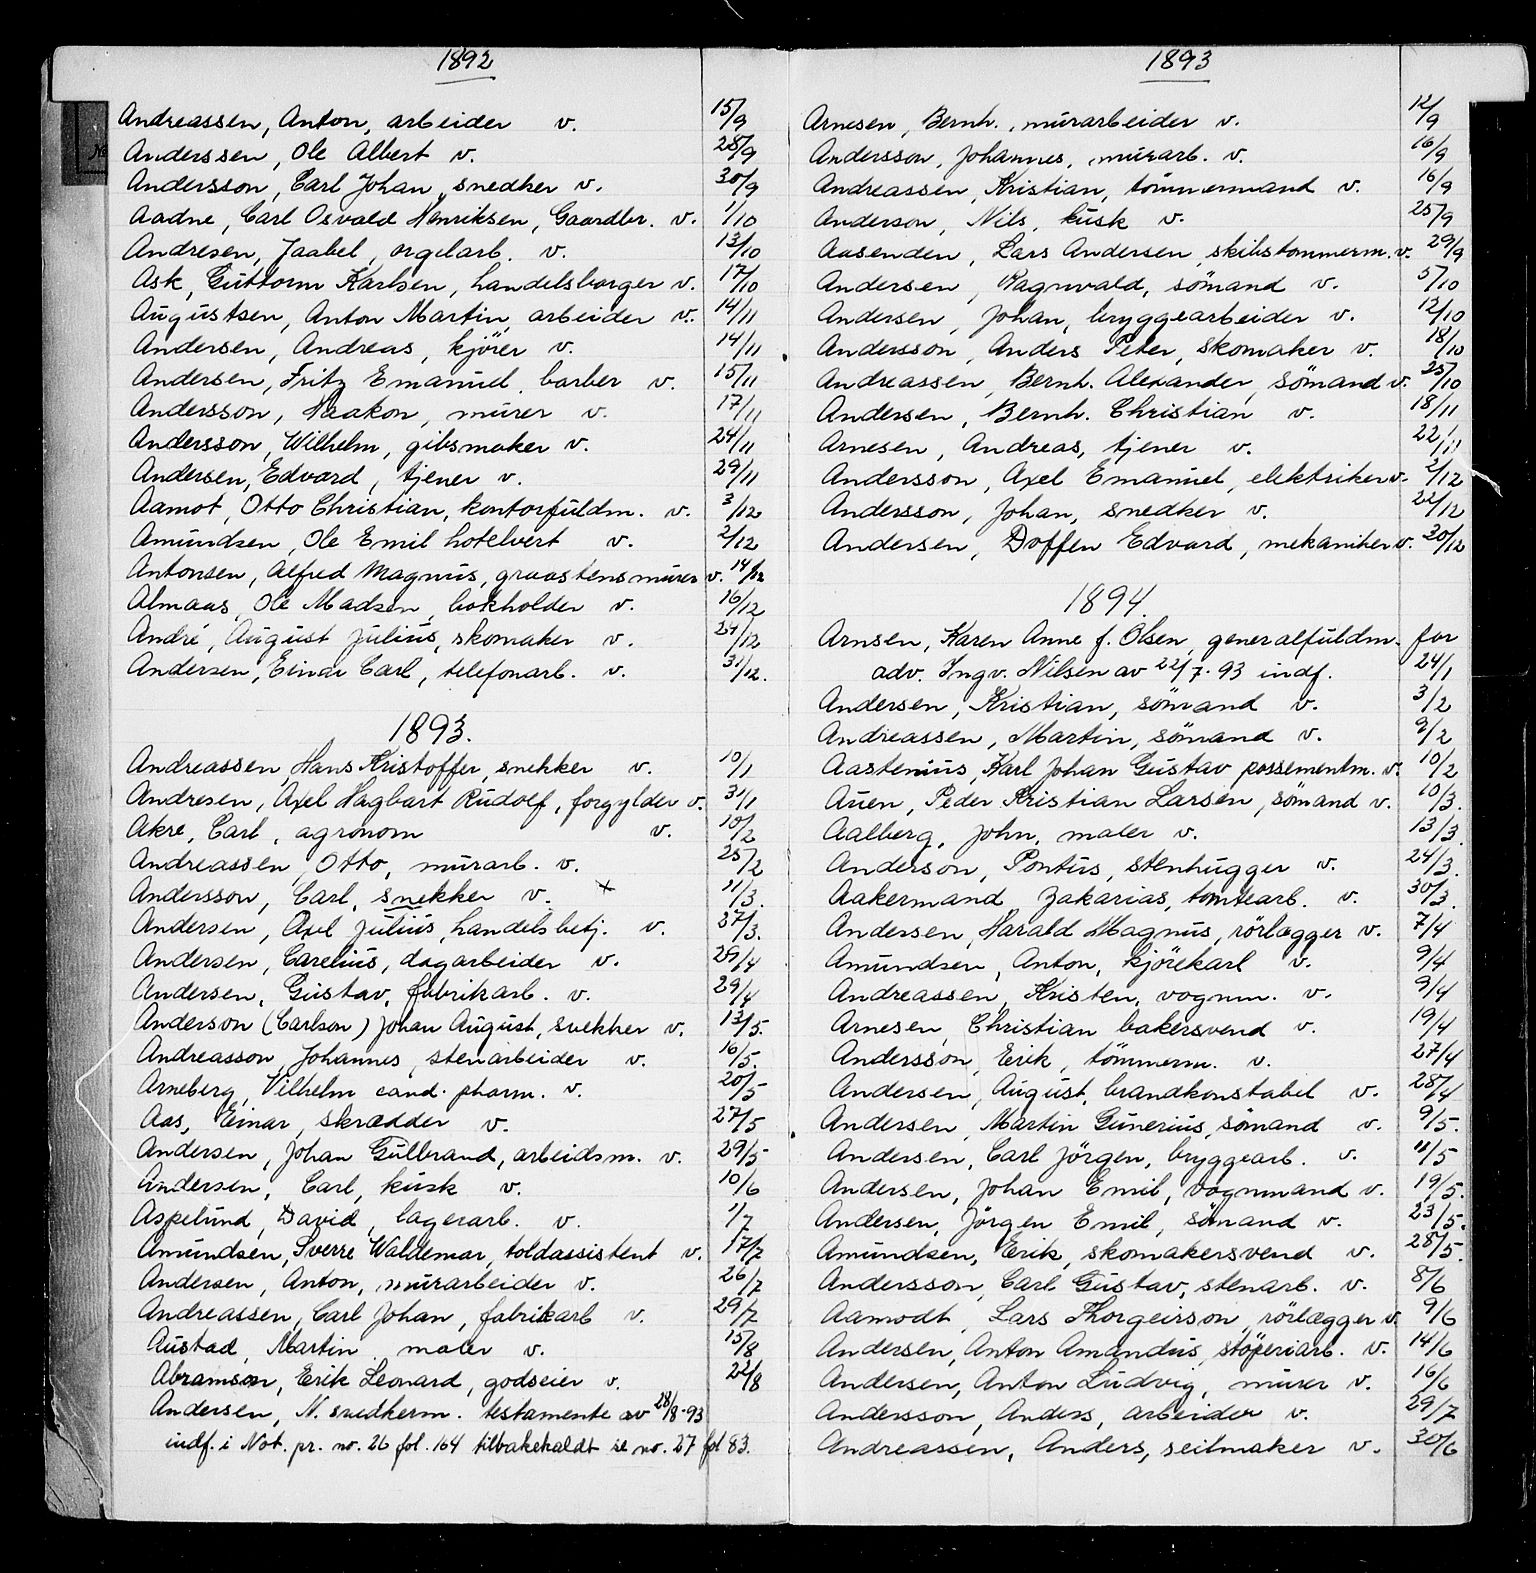 1892
Andreassen, Anton, arbeider v. 15/9
Anderssen, Ole Albert v. 28/9
Andersson, Carl Johan, snedker v. 30/9
Aadne, Carl Osvald Henriksen, Gaardbr. v. 1/10
Andresen, Jaabel, orgelarb. v. 13/10
Ask, Guttorm Karlsen, handelsborger v. 17/10
Augustsen, Anton Martin, arbeider v. 14/11
Andersen, Andreas, kjörer v. 14/11
Andersen, Fritz Emanuel, barber v. 15/11
Andersson, Haakon, murer v. 17/11
Andersson, Wilhelm, gibsmaker v. 24/11
Andersen, Edvard, tjener v. 29/11
Aamot, Otto Christian, kontorfuldm. v. 3/12
Amundsen, Ole Emil hotelvert v. 2/12
Antonsen, Alfred Magnus, graastensmurer v. 14/12
Almaas, Ole Madsen, bokholder v. 16/12
André, August Julius, skomaker v. 27/12
Andersen, Einar Carl, telefonarb. v. 31/12.
1893.
Andreassen, Hans Kristoffer, snekker v. 10/1
Andresen, Axel Hagbart Rudolf, forgylder v. 31/1
Akre, Carl, agronom v. 10/2
Andreassen, Otto, murarb. v. 25/2
Andersson, Carl, snekker v. x 11/3.
Andersen, Axel Julius, handelsbetj. v. 27/3.
Andersen, Carelius, dagarbeider v. 29/4
Andersen, Gustav, fabrikarb. v. 29/4
Anderson (Carlson) Johan August, snekker v. 13/5.
Andreasson, Johannes, stenarbeider v. 16/5.
Arneberg, Vilhelm cand. pharm. v. 20/5
Aas, Einar, skrædder v. 27/5
Andersen, Johan Gulbrand, arbeidsm. v. 29/5
Andersen, Carl, kusk v. 10/6
Aspelund, David, lagerarb. v. 1/7
Amundsen, Sverre Waldemar, toldassistent v. 17/7
Andersen, Anton, murarbeider v. 26/7
Andreassen, Carl Johan, fabrikarb v. 29/7
Austad, Martin maler v. 15/8
Abramson, Erik Leonard, godseier v. 22/8
Andersen, N. snedkerm. testamente av 28/8-93
indf. i Not. pr. no. 26 fol. 164 tilbakekaldt se no. 27 fol 83.
1893
Arnesen, Bernh., murarbeider v. 12/9
Andersson, Johannes, murarb. v. 16/9
Andreassen, Kristian, tömmermand v. 16/9
Anderson, Nils, kusk v. 25/9
Aasenden, Lars Andersen, skibstommerm. v. 29/9
Andersen, Ragnvald, sömand v. 5/10
Andersen, Johan, bryggearbeider v. 12/10
Andersson, Anders Peter, skomaker v. 18/10
Andreassen, Bernh. Alexander, sömand v. 25/10
Andersen, Bernh. Christian v. 18/11
Arnesen, Andreas, tjener v. 22/11
Andersson, Axel Emanuel, elektriker v. 2/12
Andersson, Johan, snedker v. 22/12
Andersen, Doffen Edvard, mekaniker v. 30/12
1894.
Arnsen, Karen Anne f. Olsen, generalfuldm. for
adv. Ingv. Nilsen av 22/7-93 indf. 24/1
Andersen, Kristian, sömand v. 3/2
Andreassen, Martin, sömand v. 9/2
Aastenius, Karl Johan Gustav possementm. v. 10/2
Auen, Peder Kristian Larsen, sömand v. 10/3.
Aalberg, John, maler v. 13/3.
Anderson, Pontus, stenhugger v. 24/3.
Aakermand Zakarias, tomtearb. v. 30/3.
Andersen, Harald Magnus, rörlægger v. 7/4
Amundsen, Anton, kjörekarl v. 9/4
Andreassen, Kristen, vognm. v. 9/4
Arnesen, Christian bakersvend v. 19/4
Andersson, Erik, tömmerm. v. 27/4
Andersen, August, brandkonstabel v. 28/4
Andersen, Martin Gunerius, sömand v. 9/5.
Andersen, Carl Jörgen, bryggearb. v. 11/5
Andersen, Johan Emil, vognmand v. 19/5.
Andersen, Jörgen Emil, sömand v. 23/5.
Amundsen, Erik, skomakersvend v. 28/5.
Andersson, Carl Gustav, stenarb. v. 8/6
Aamodt, Lars Thorgeirson, rörlægger v. 9/6
Andersen, Anton Amandus, stöperiarb. v. 14/6
Andersen, Anton Ludvig, murer v. 16/6
Andersson, Anders, arbeider v. 29/7
Andreassen, Anders, seilmaker v. 30/6